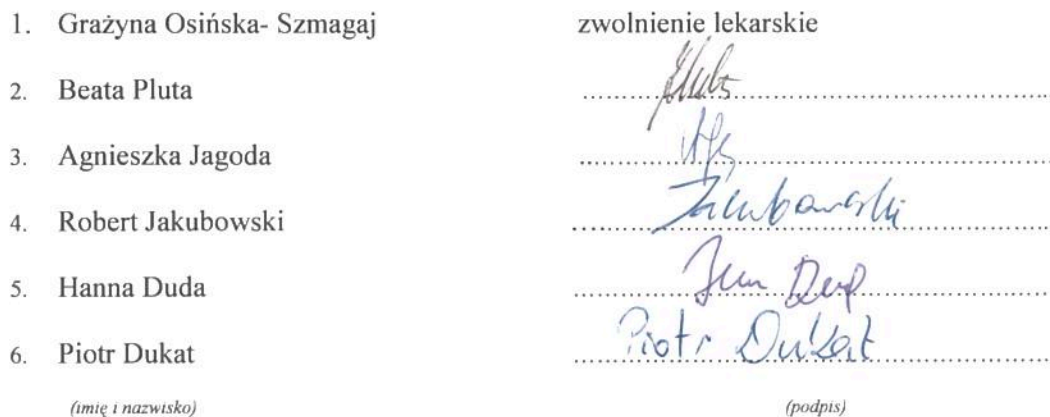 1. Grażyna Osińska- Szmagaj zwolnienie lekarskie
2. Beata Pluta ........................................
3. Agnieszka Jagoda ........................................
4. Robert Jakubowski Jakubowski
5. Hanna Duda ........................................
6. Piotr Dukat Piotr Dukat
(imię i nazwisko) (podpis)